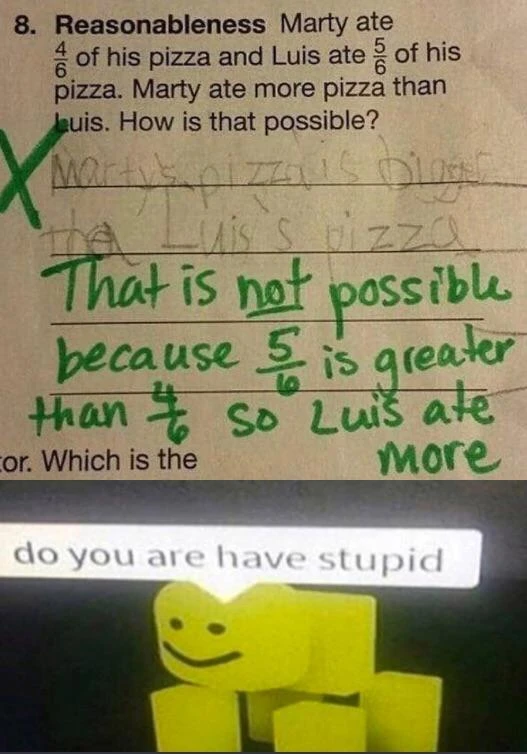 8. Reasonableness Marty ate
4/6 of his pizza and Luis ate 5/6 of his
pizza. Marty ate more pizza than
Luis. How is that possible?
X
Marty's pizza is bigger
than Luis's pizza
That is not possible
because 5/6 is greater
than 4/6 so Luis ate
more
tor. Which is the
do you are have stupid